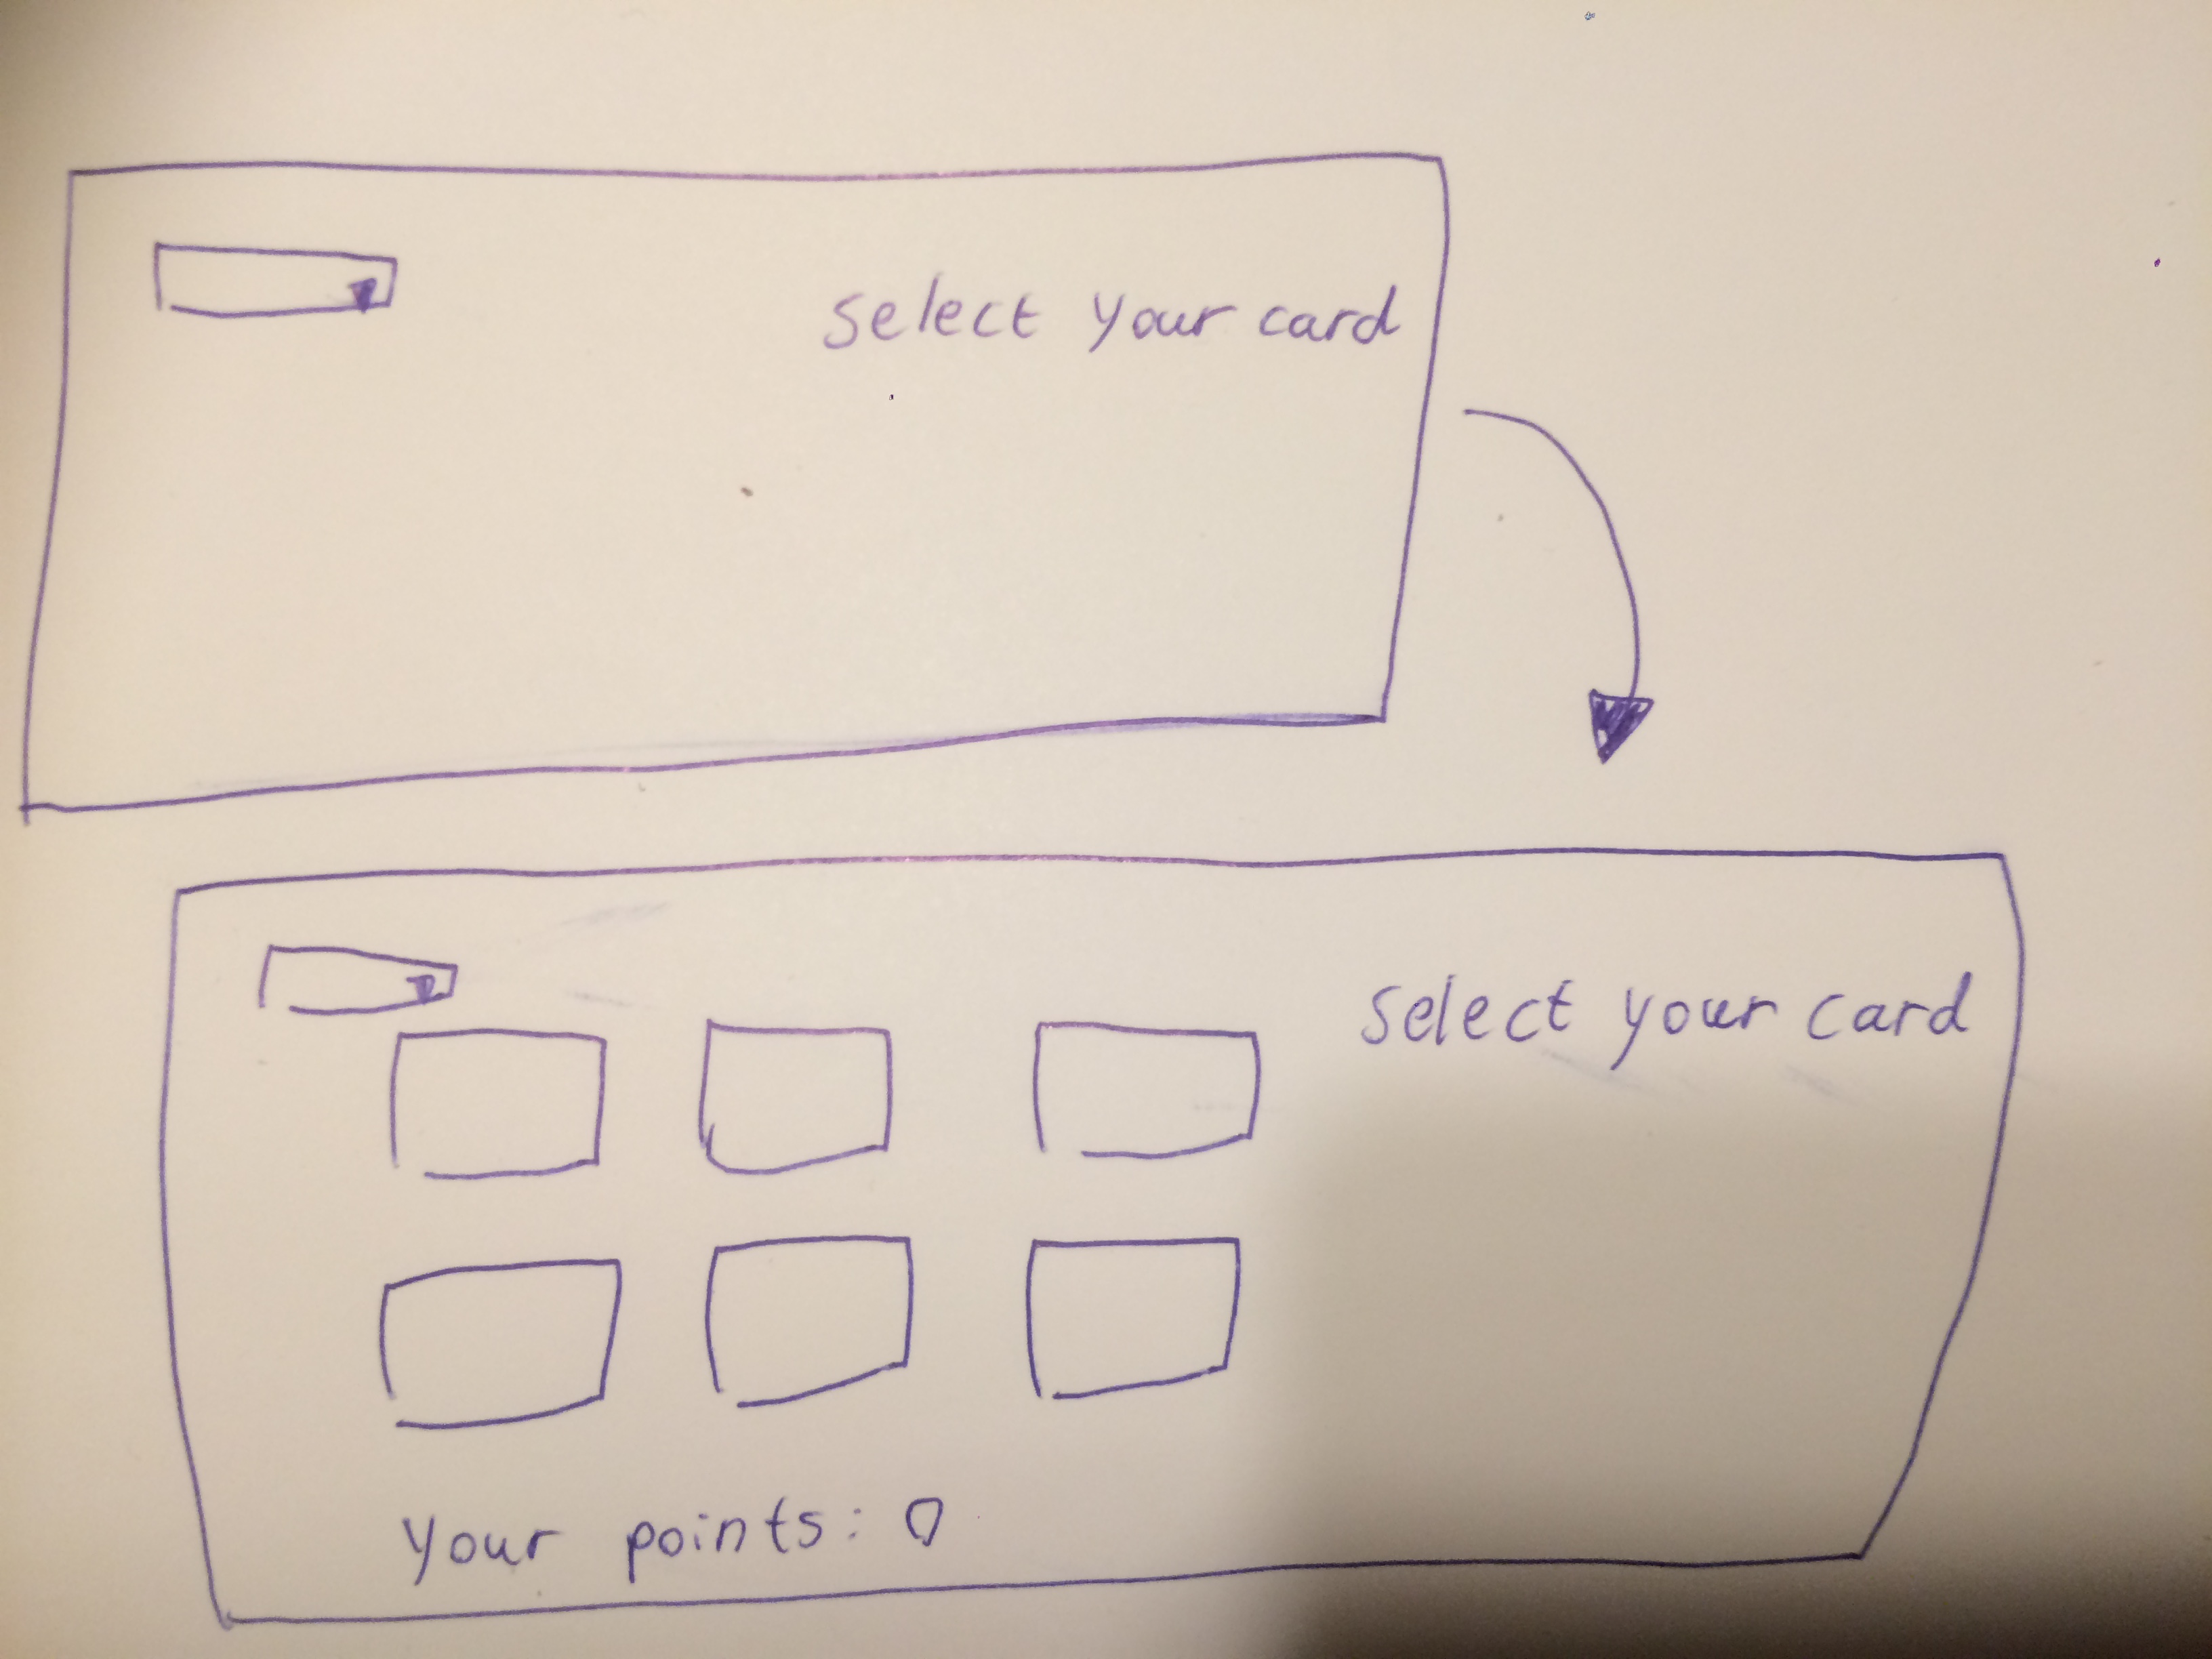 Select your card
Select your card
Your points: 0